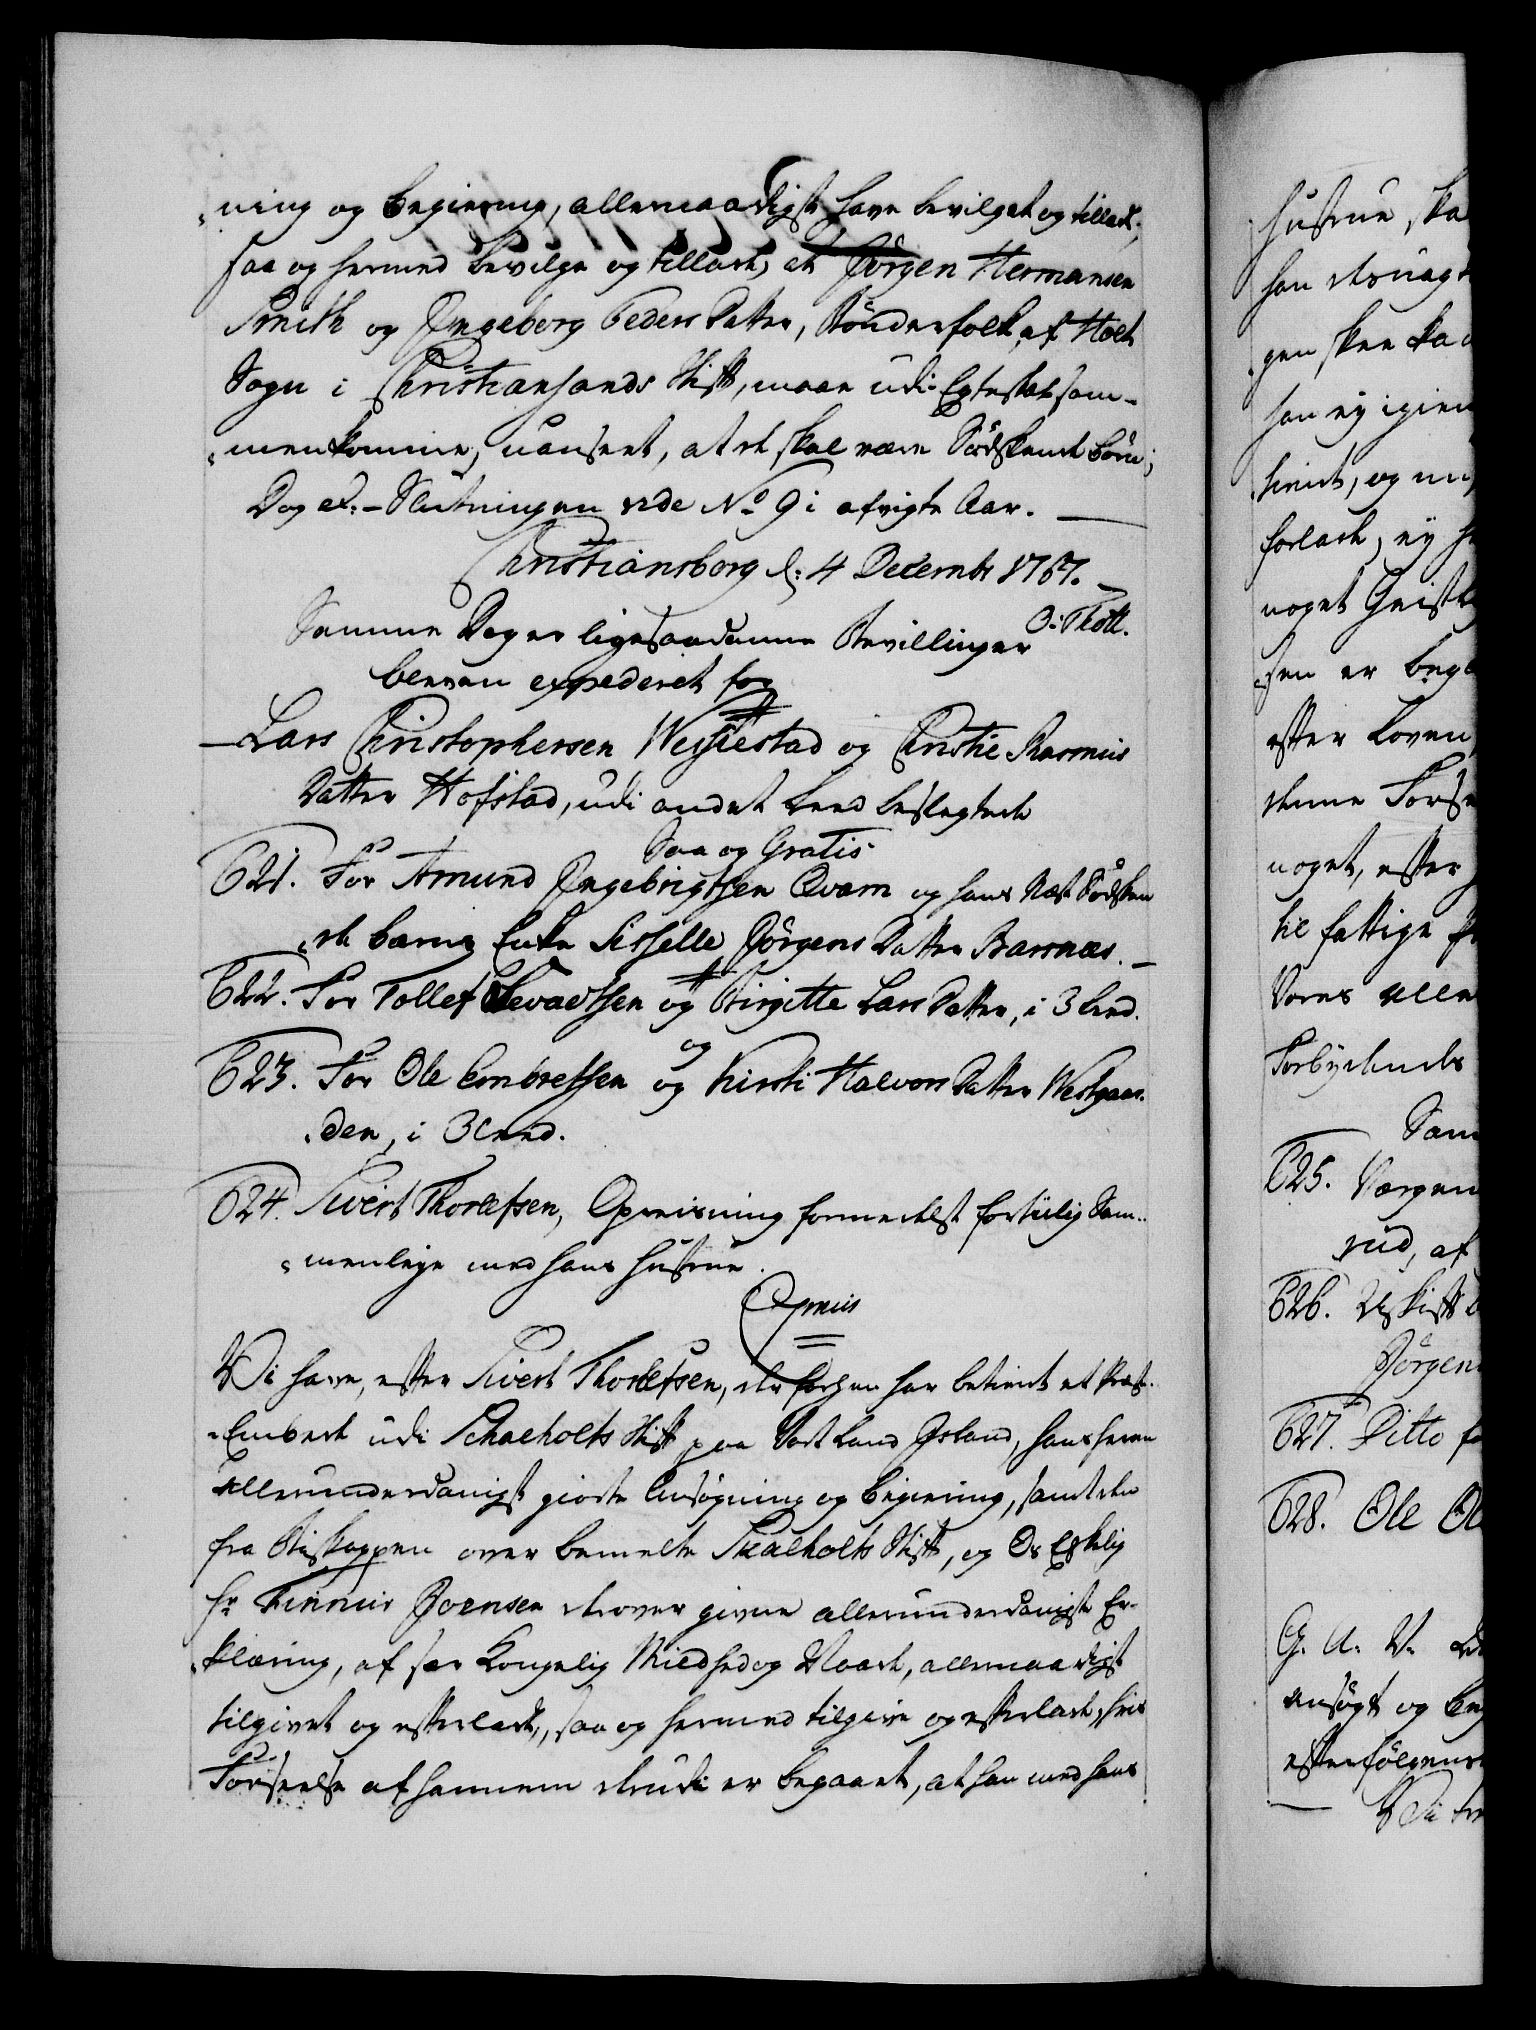 ning og begiering, allernaadigst have bevilget og tilladt,
saa og hermed bevilge og tillade, at Jørgen Hermansen
Smith og Ingeborg Peders Datter, Bønderfolk af Holt
Sogn i Christiansands Stift, maae udi Egteskab sam-
menkomme, uanseet, at de skal være Sødskende børn;
Dog ex:- Slutningen vide No 9 i afvigte Aar.
Christiansborg d: 4 Decembr 1767.
O: Thott.
Samme Dag er ligesaadanne Bevillinger
bleven expederet for
Lars Christophersen Westestad og Christie Rasmus
Datter Hofstad, udi andet Leed beslegtede
Saa og Gratis
621. For Amund Ingebrigtsen Qvam og hans Næst Sødsken
de barns Enke Sisselle Jørgens Datter Barsnæs.
622. For Tollef Sevaldsen og Birgitte Lars Datter, i 3 Leed.
og
623. For Ole Embretsen og Kirsti Halvors Datter Westgaar-
den, i 3 Leed.
624. Sivert Thorlefsen, Opreisning formedelst fortiilig Sam-
menleje med hans Hustrue.
Opreis
Vi have, efter Sivert Thorlefsen, der forhen har betient et Præste-
Embede udi Schalholts Stift paa Vort Land Island, hans herom
allerunderdanigst giorte Ansøgning og begiering, samt den
fra Biskoppen over bemelte Skalholts Stift, og Os Elskelig
Hr Finnur Joensen derover givne allerunderdanigste Er-
klæring, af sær Kongelig Mildhed og Naade, allernaadigst
tilgivet og efterladt, saa og hermed tilgive og efterlade, hvis
Forseelse af hannem derudi er begaaet, at han med hans
Hustrue ska
han
gen skee ka
han ey igien
tient, og
forlade, ey
noget Geistl
sen er beg
efter Loven
denne Forse
noget, efter
til fattige
Vores Alle
Forbydende
Sam
625. Jørgen
rud, af
626. Uskift
Jørgen
627. Ditto fo
628. Ole Ol
G. A. V.
ansøgt og beg
efterfølgende